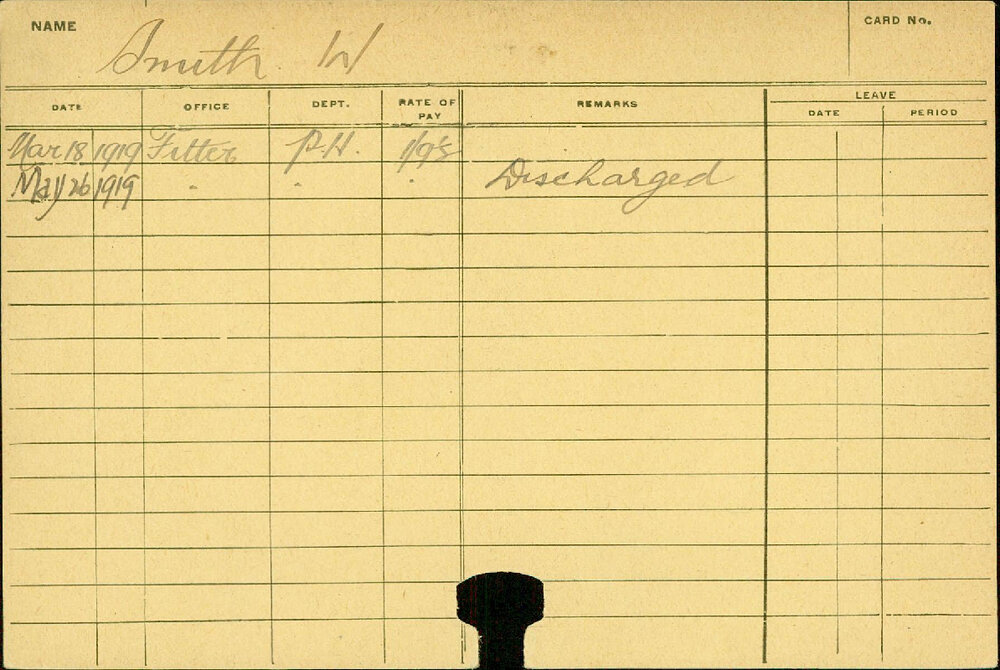 NAME Smith W CARD No.
DATE OFFICE DEPT. RATE OF PAY REMARKS LEAVE
DATE PERIOD
Mar 18 1919 Fitter P.H.
May 26 1919 " " " Discharged